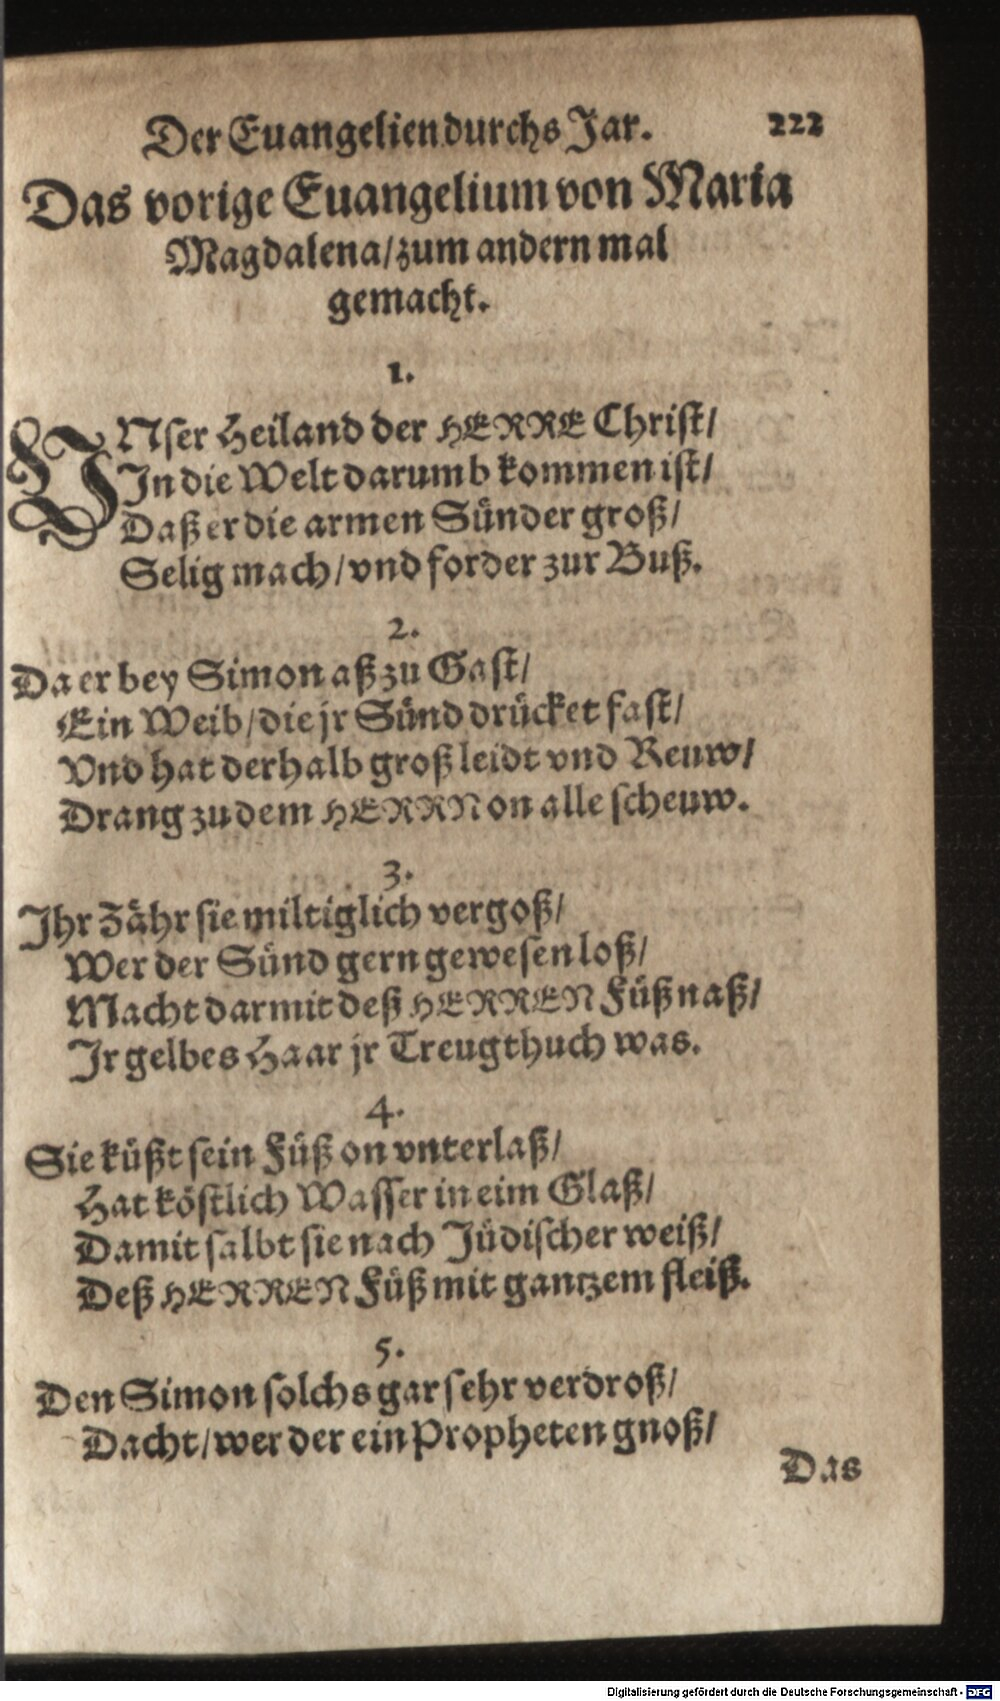 Der Euangelien durchs Jar. 222
Das vorige Euangelium von Maria
Magdalena/ zum andern mal
gemacht.
1.
VNser Heiland der HERRE Christ/
In die Welt darumb kommen ist/
Daß er die armen Sünder groß/
Selig mach/ vnd forder zur Buß.
2.
Da er bey Simon aß zu Gast/
Ein Weib/ die jr Sünd drücket fast/
Vnd hat derhalb groß leidt vnd Reuw/
Drang zu dem HERRN on alle scheuw.
3.
Ihr Zähr sie miltiglich vergoß/
Wer der Sünd gern gewesen loß/
Macht darmit deß HERREN Füß naß/
Ir gelbes Haar jr Treugthuch was.
4.
Sie küßt sein Füß on vnterlaß/
Hat köstlich Wasser in eim Glaß/
Damit salbt sie nach Jüdischer weiß/
Deß HERREN Füß mit gantzem fleiß.
5.
Den Simon solchs gar sehr verdroß/
Dacht/ wer der ein Propheten gnoß/
Das
Digitalisierung gefördert durch die Deutsche Forschungsgemeinschaft - DFG